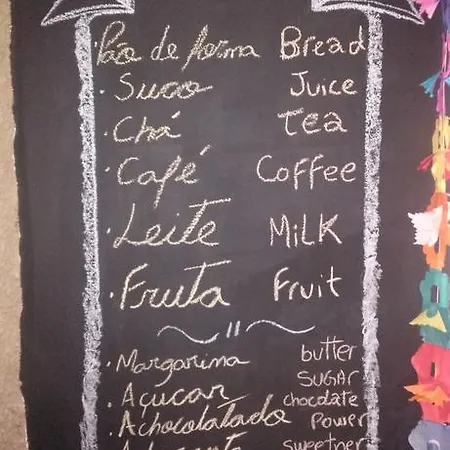 · Pão de forma Bread
· Suco Juice
· Chá Tea
· Café Coffee
· Leite MiLK
· Fruta Fruit
· Margarina butter
· Açucar SUGAR
· Achocolatado chocolate Power
sweetner